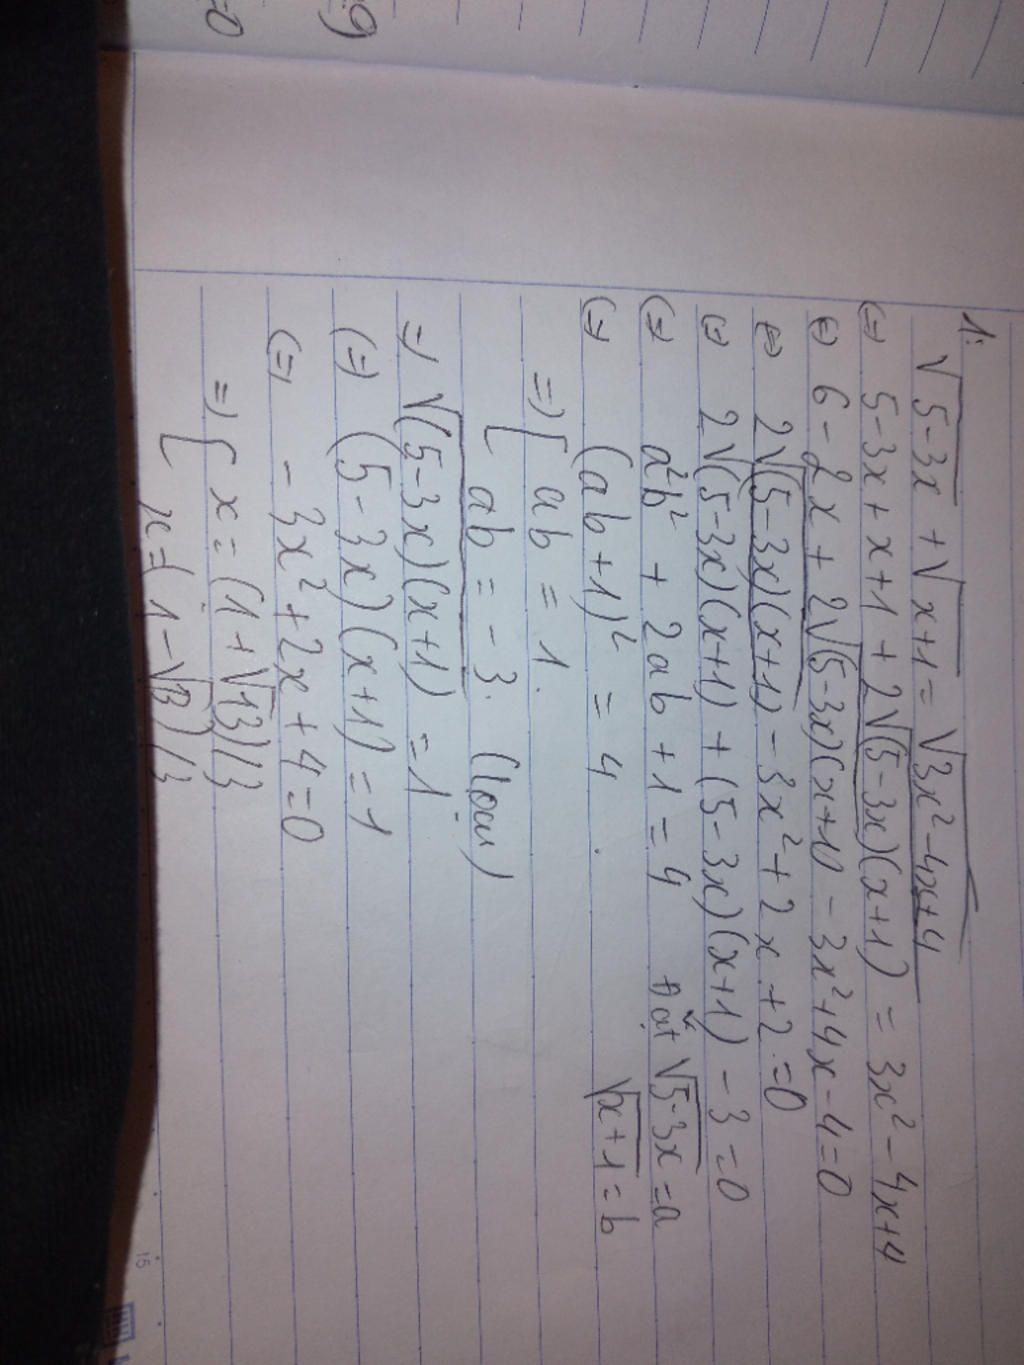 =9
=0
1:
√5-3x + √x+1 = √3x²-4x+4
(=) 5-3x+x+1 + 2√(5-3x)(x+1) = 3x²-4x+4
(=) 6-2x+2√(5-3x)(x+1) - 3x²+4x-4=0
(=) 2√(5-3x)(x+1) - 3x²+2x+2=0
(=) 2√(5-3x)(x+1) + (5-3x)(x+1) - 3=0
(=) a²b² + 2ab + 1 = 4 Đặt √5-3x = a
(=) (ab+1)² = 4. √x+1 = b
=) [ ab = 1.
[ ab = -3. (loại)
=) √(5-3x)(x+1) = 1
(=) (5-3x)(x+1) = 1
(=) -3x²+2x+4=0
=) [ x = (1+√13)/3
x = (1-√13)/3
15